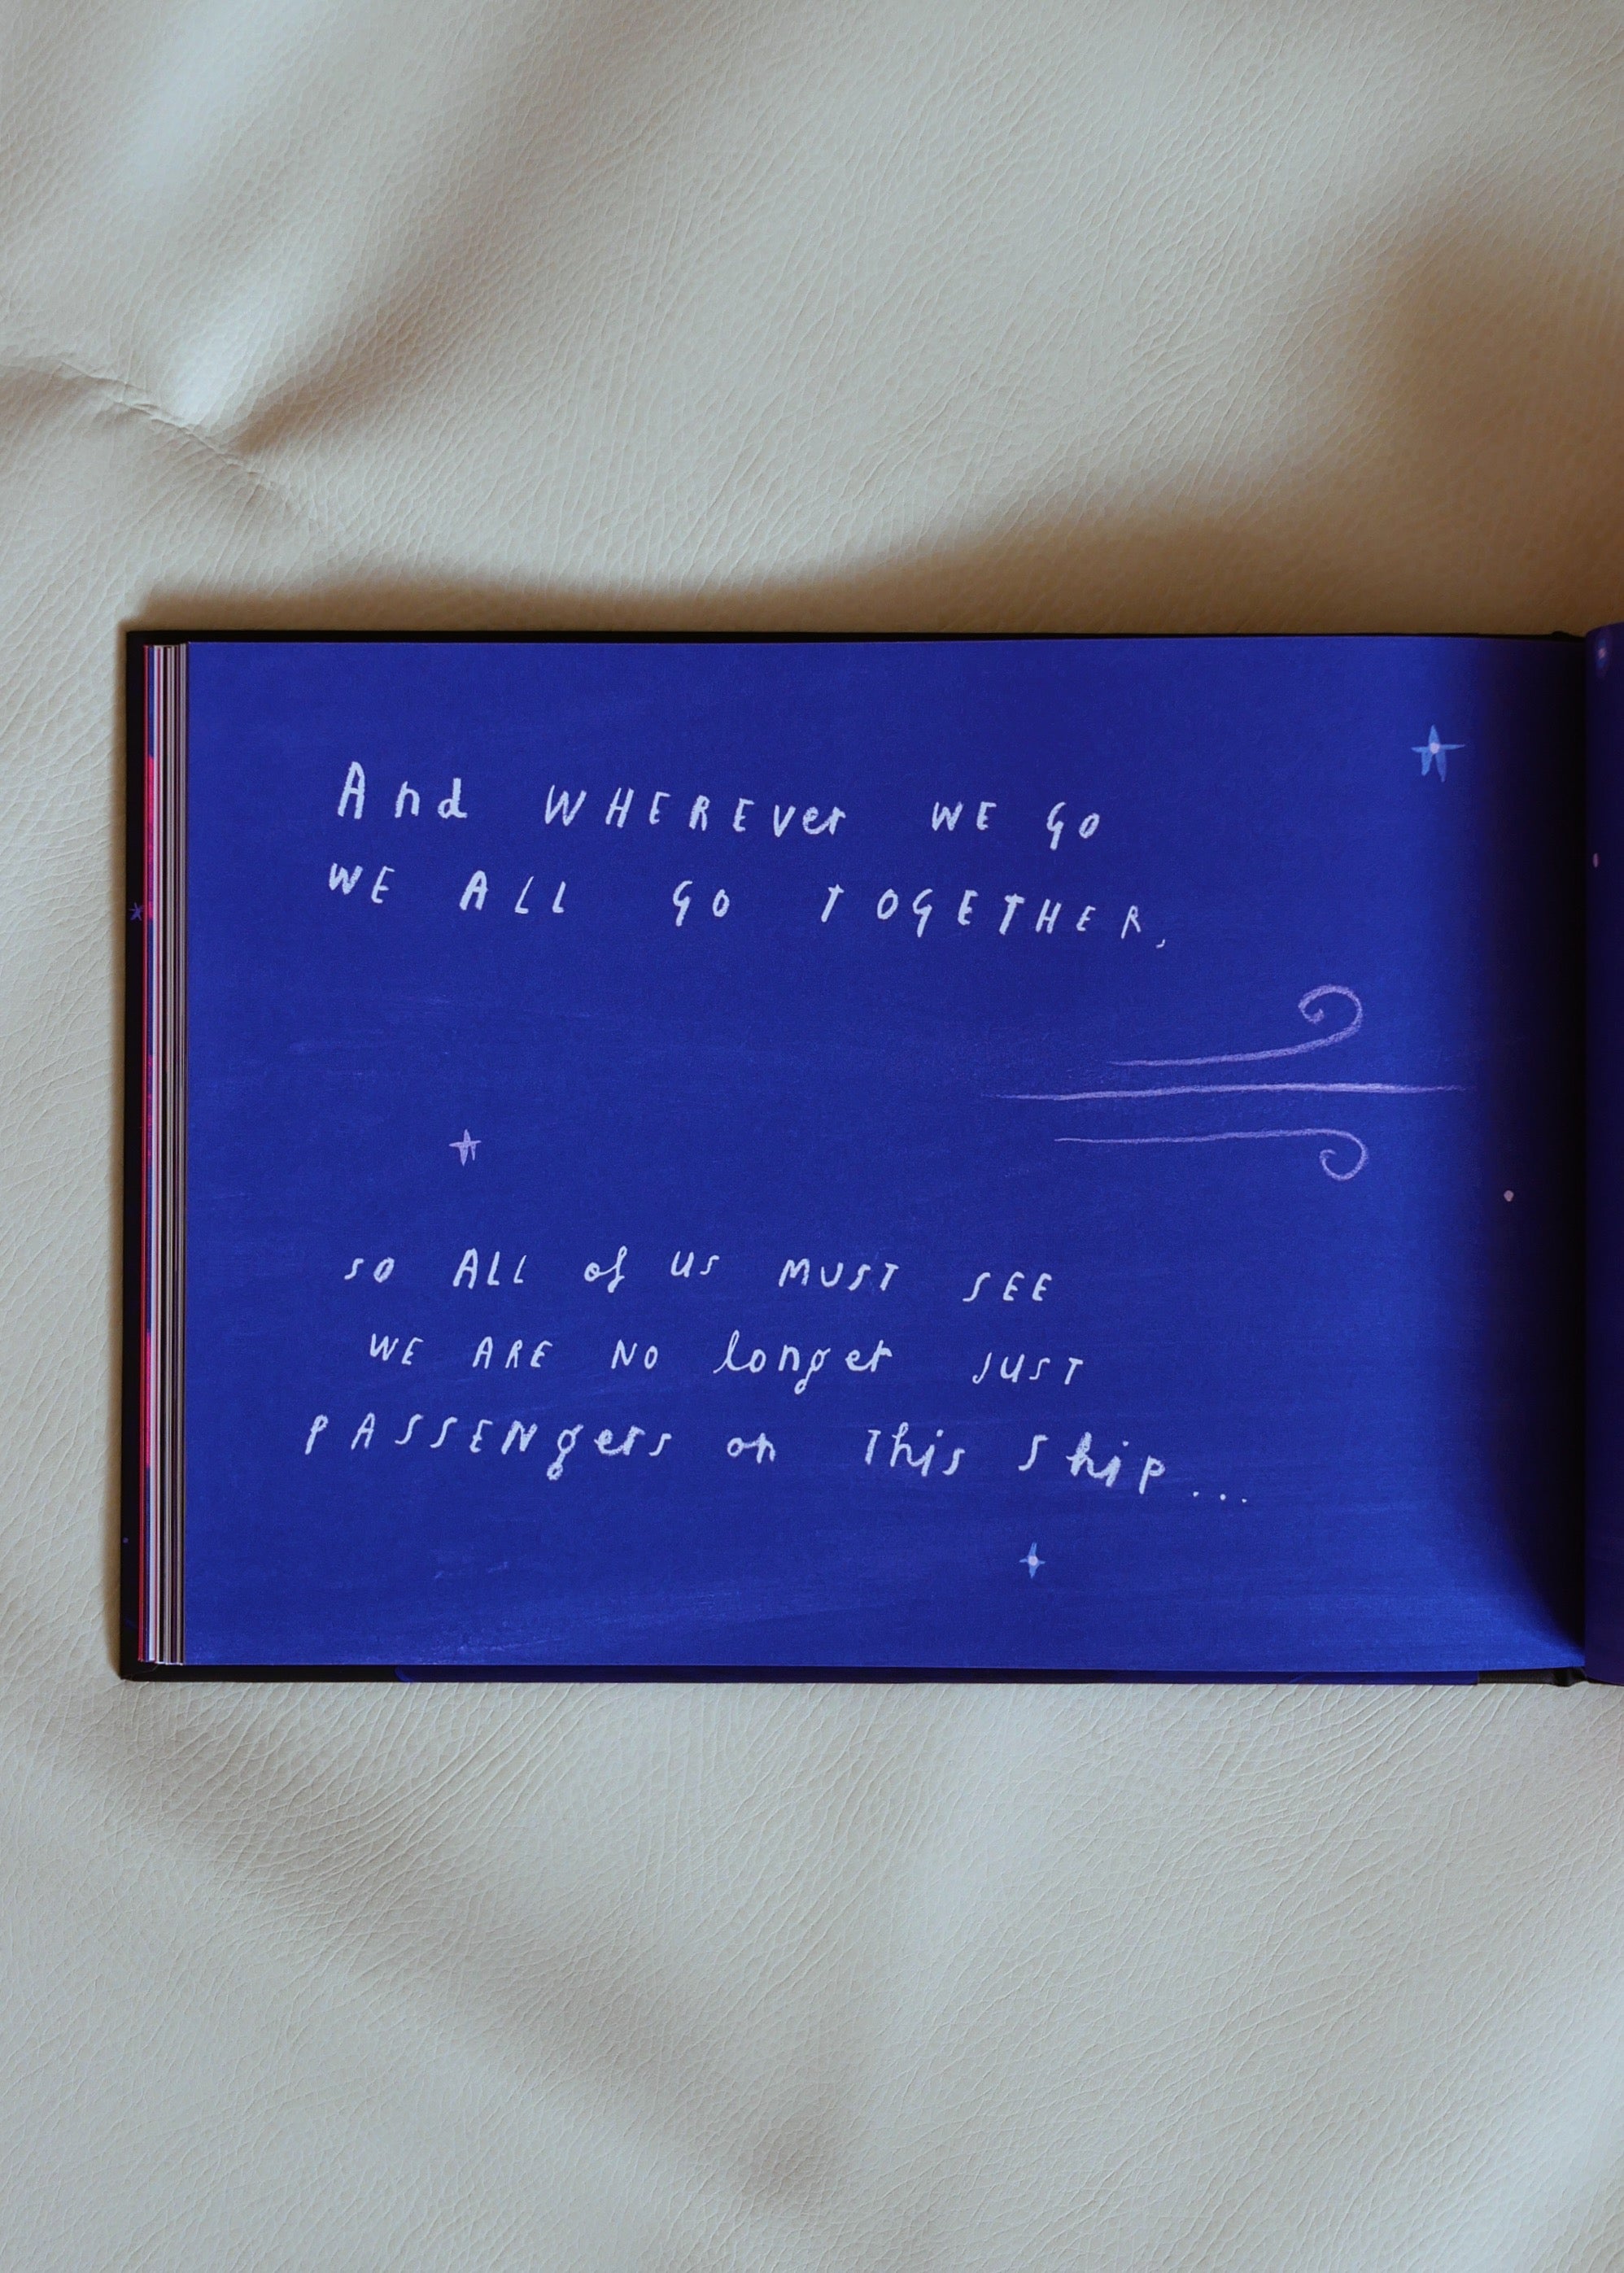 And WHEREVer WE GO
WE ALL GO TOGETHER,
so ALL of us MUST SEE
WE ARE NO longer JUST
PASSENgers on This Ship...